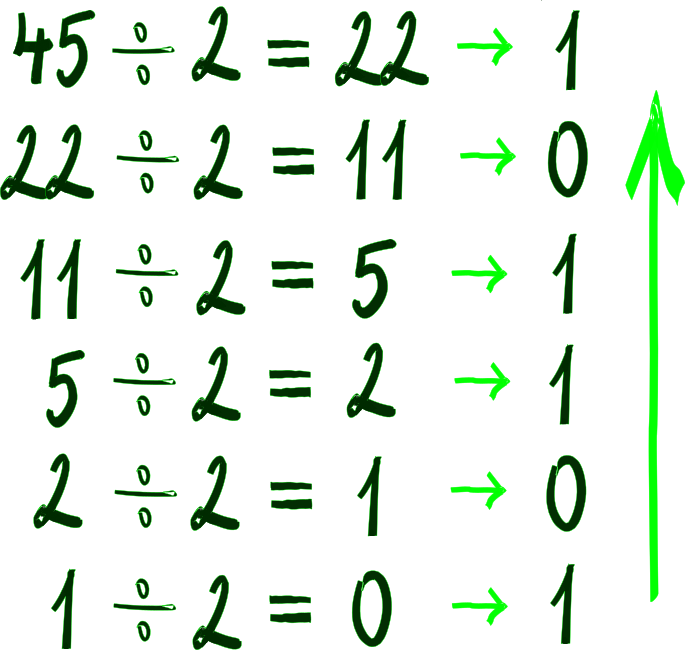 45 ÷ 2 = 22 → 1
22 ÷ 2 = 11 → 0
11 ÷ 2 = 5 → 1
5 ÷ 2 = 2 → 1
2 ÷ 2 = 1 → 0
1 ÷ 2 = 0 → 1